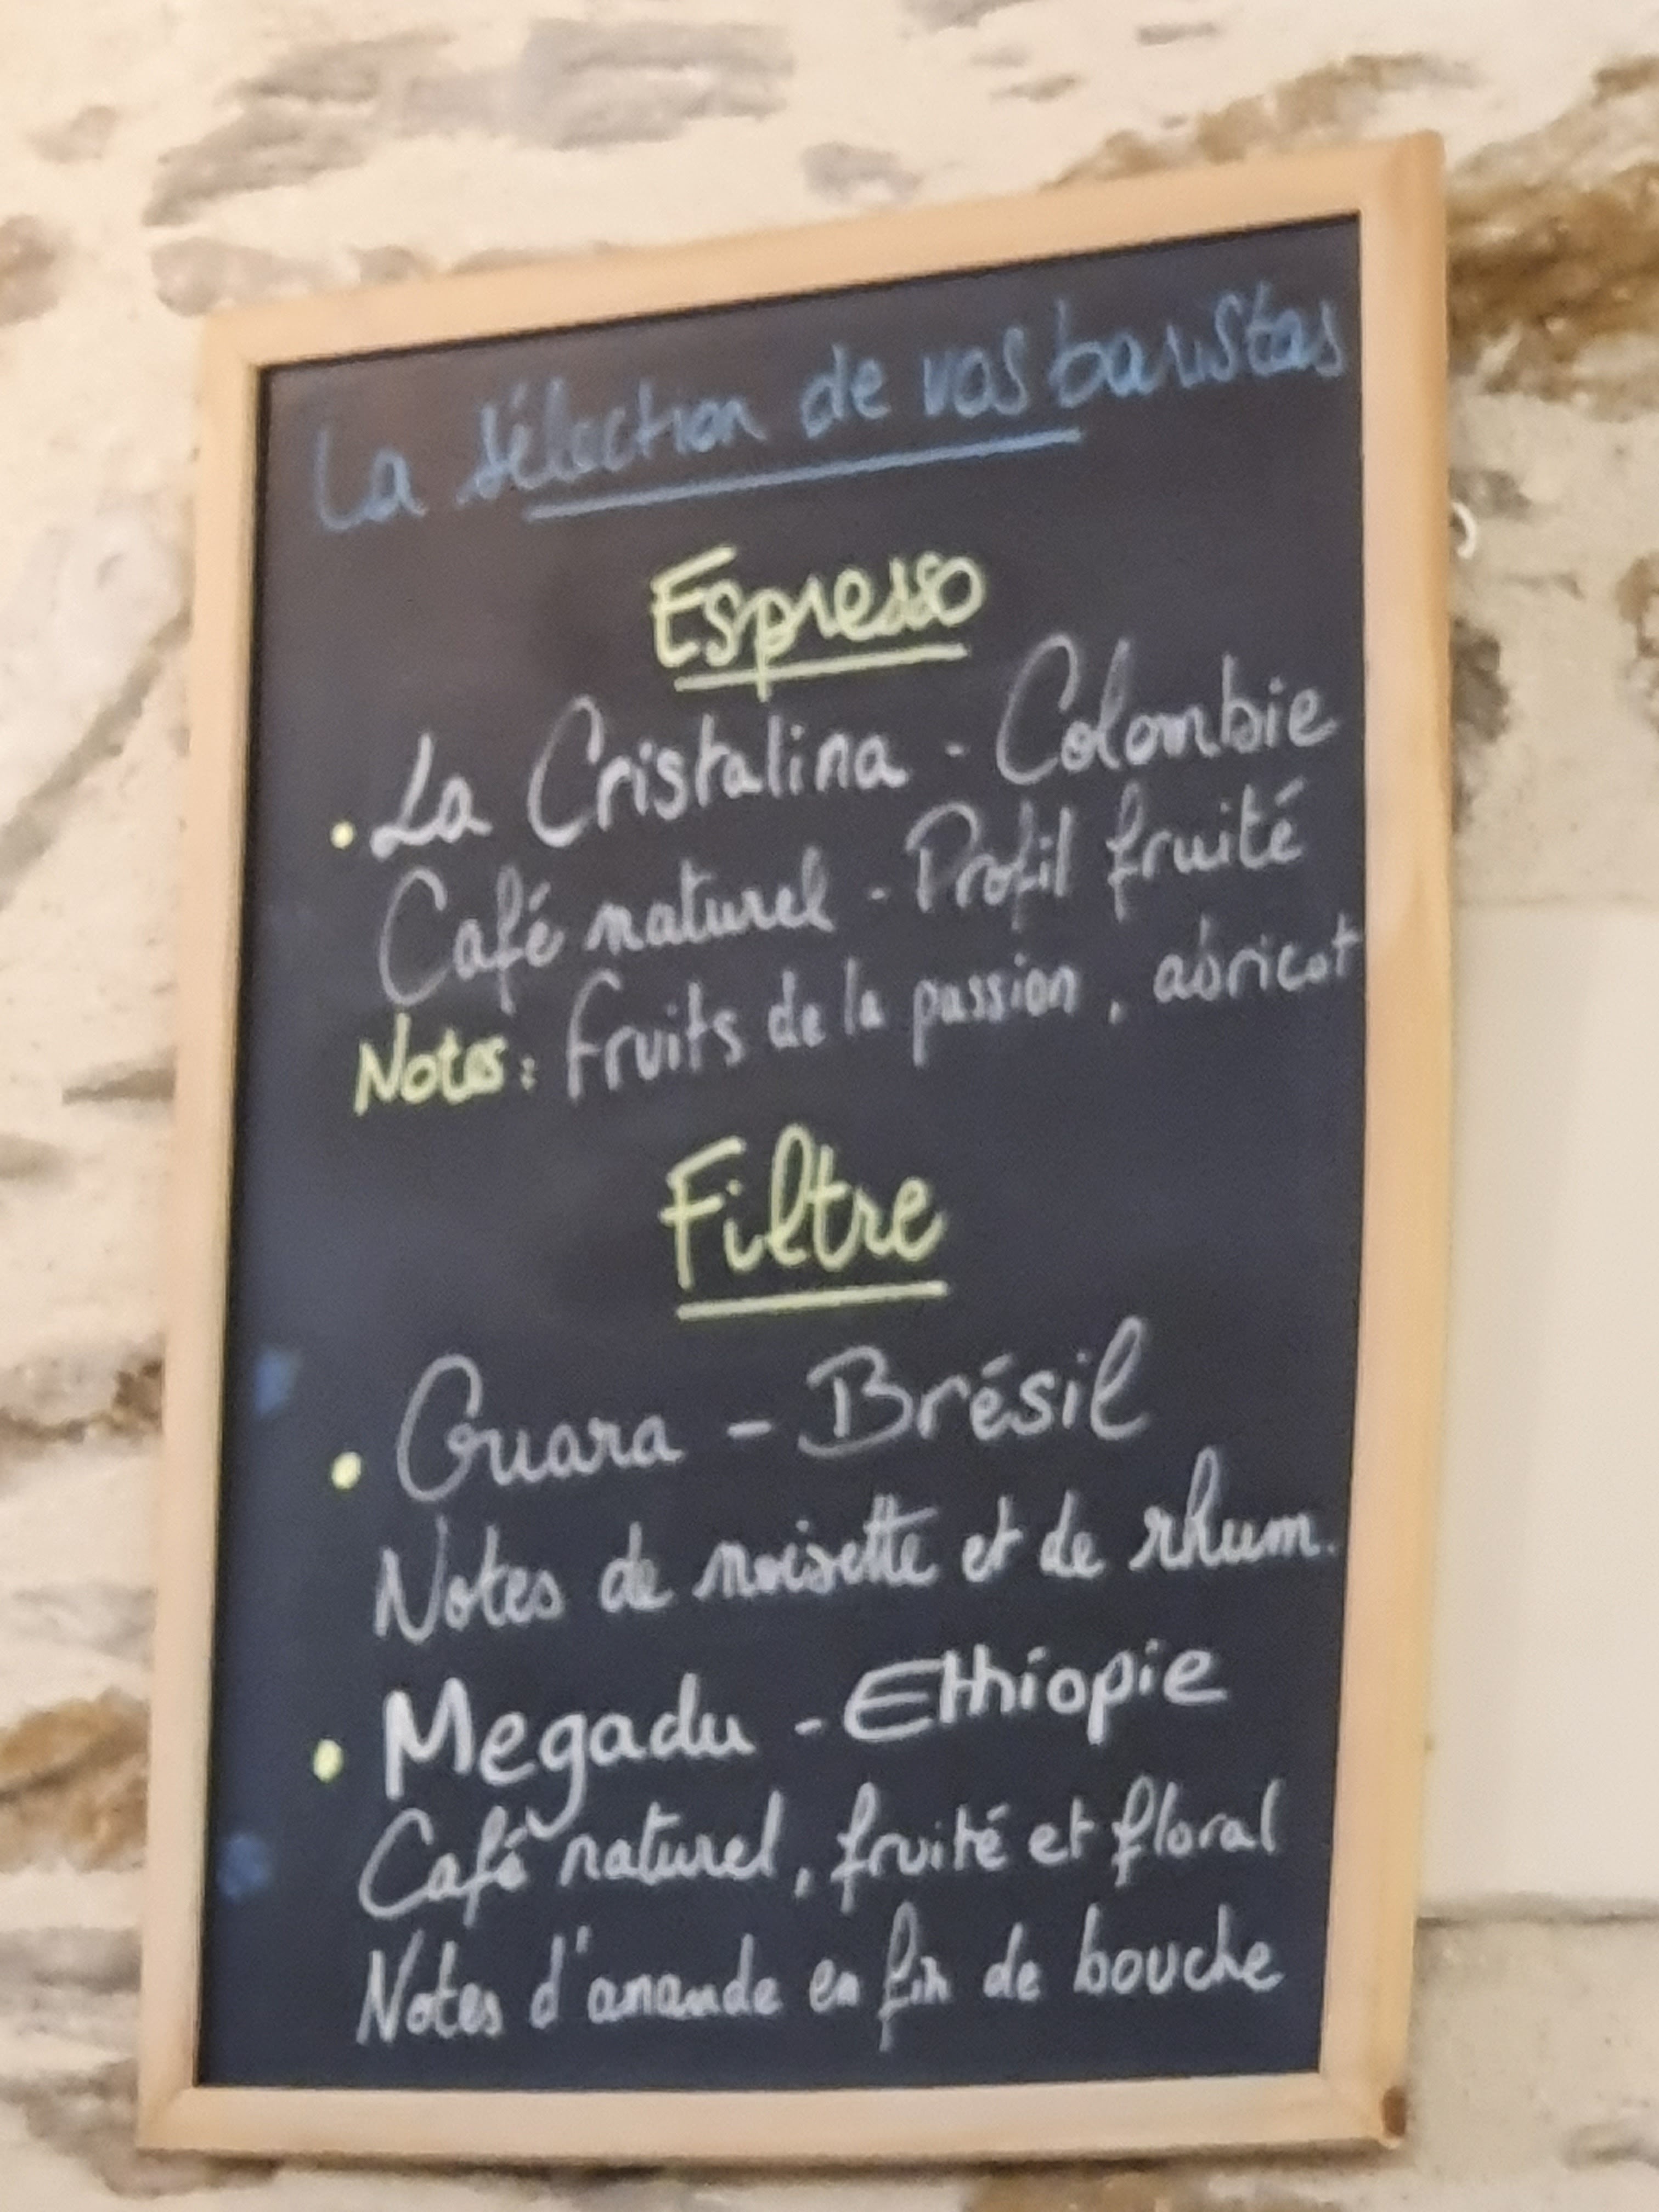 La sélection de vos baristas
Espresso
• La Cristalina - Colombie
Café naturel - Profil fruité
Notes : fruits de la passion, abricot
Filtre
• Guara - Brésil
Notes de noisette et de rhum.
• Megadu - Ethiopie
Café naturel, fruité et floral
Notes d'amande en fin de bouche